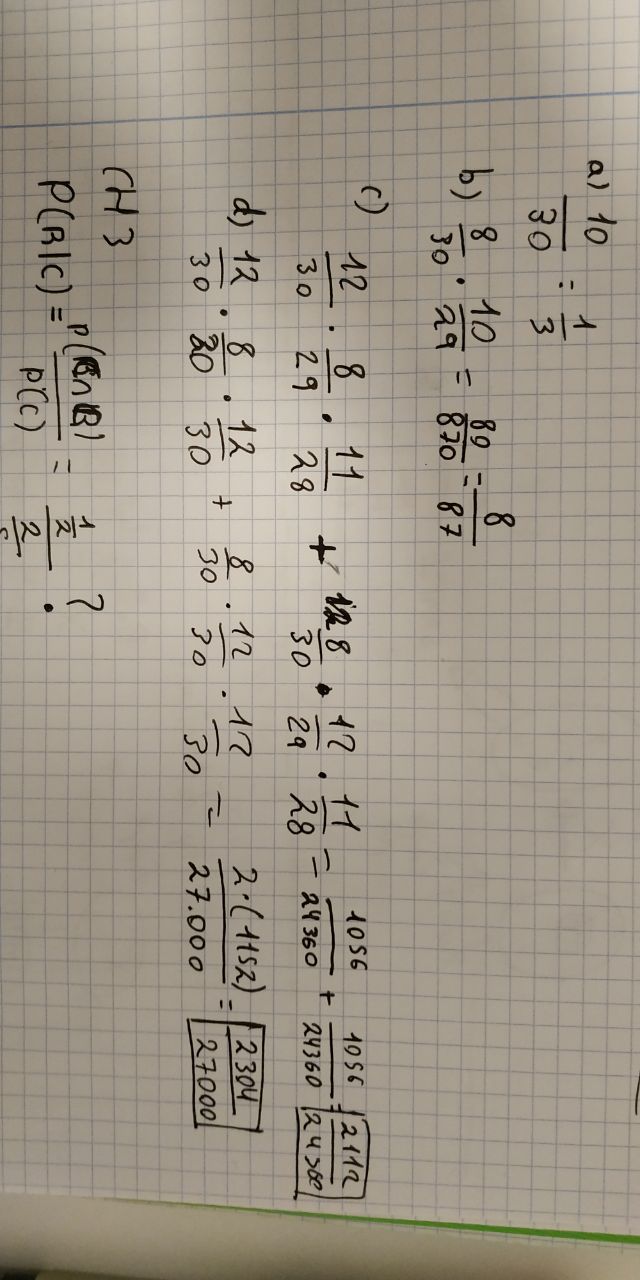 a) 10/30 = 1/3
b) 8/30 · 10/29 = 80/870 = 8/87
c) 12/30 · 8/29 · 11/28 + 8/30 · 12/29 · 11/28 = 1056/24360 + 1056/24360 = 2112/24360
d) 12/30 · 8/30 · 12/30 + 8/30 · 12/30 · 12/30 = 2·(1152)/27.000 = 2304/27000
CH 3
P(B|C) = P(C∩B)/P(C) = 1/2 / 2 ?